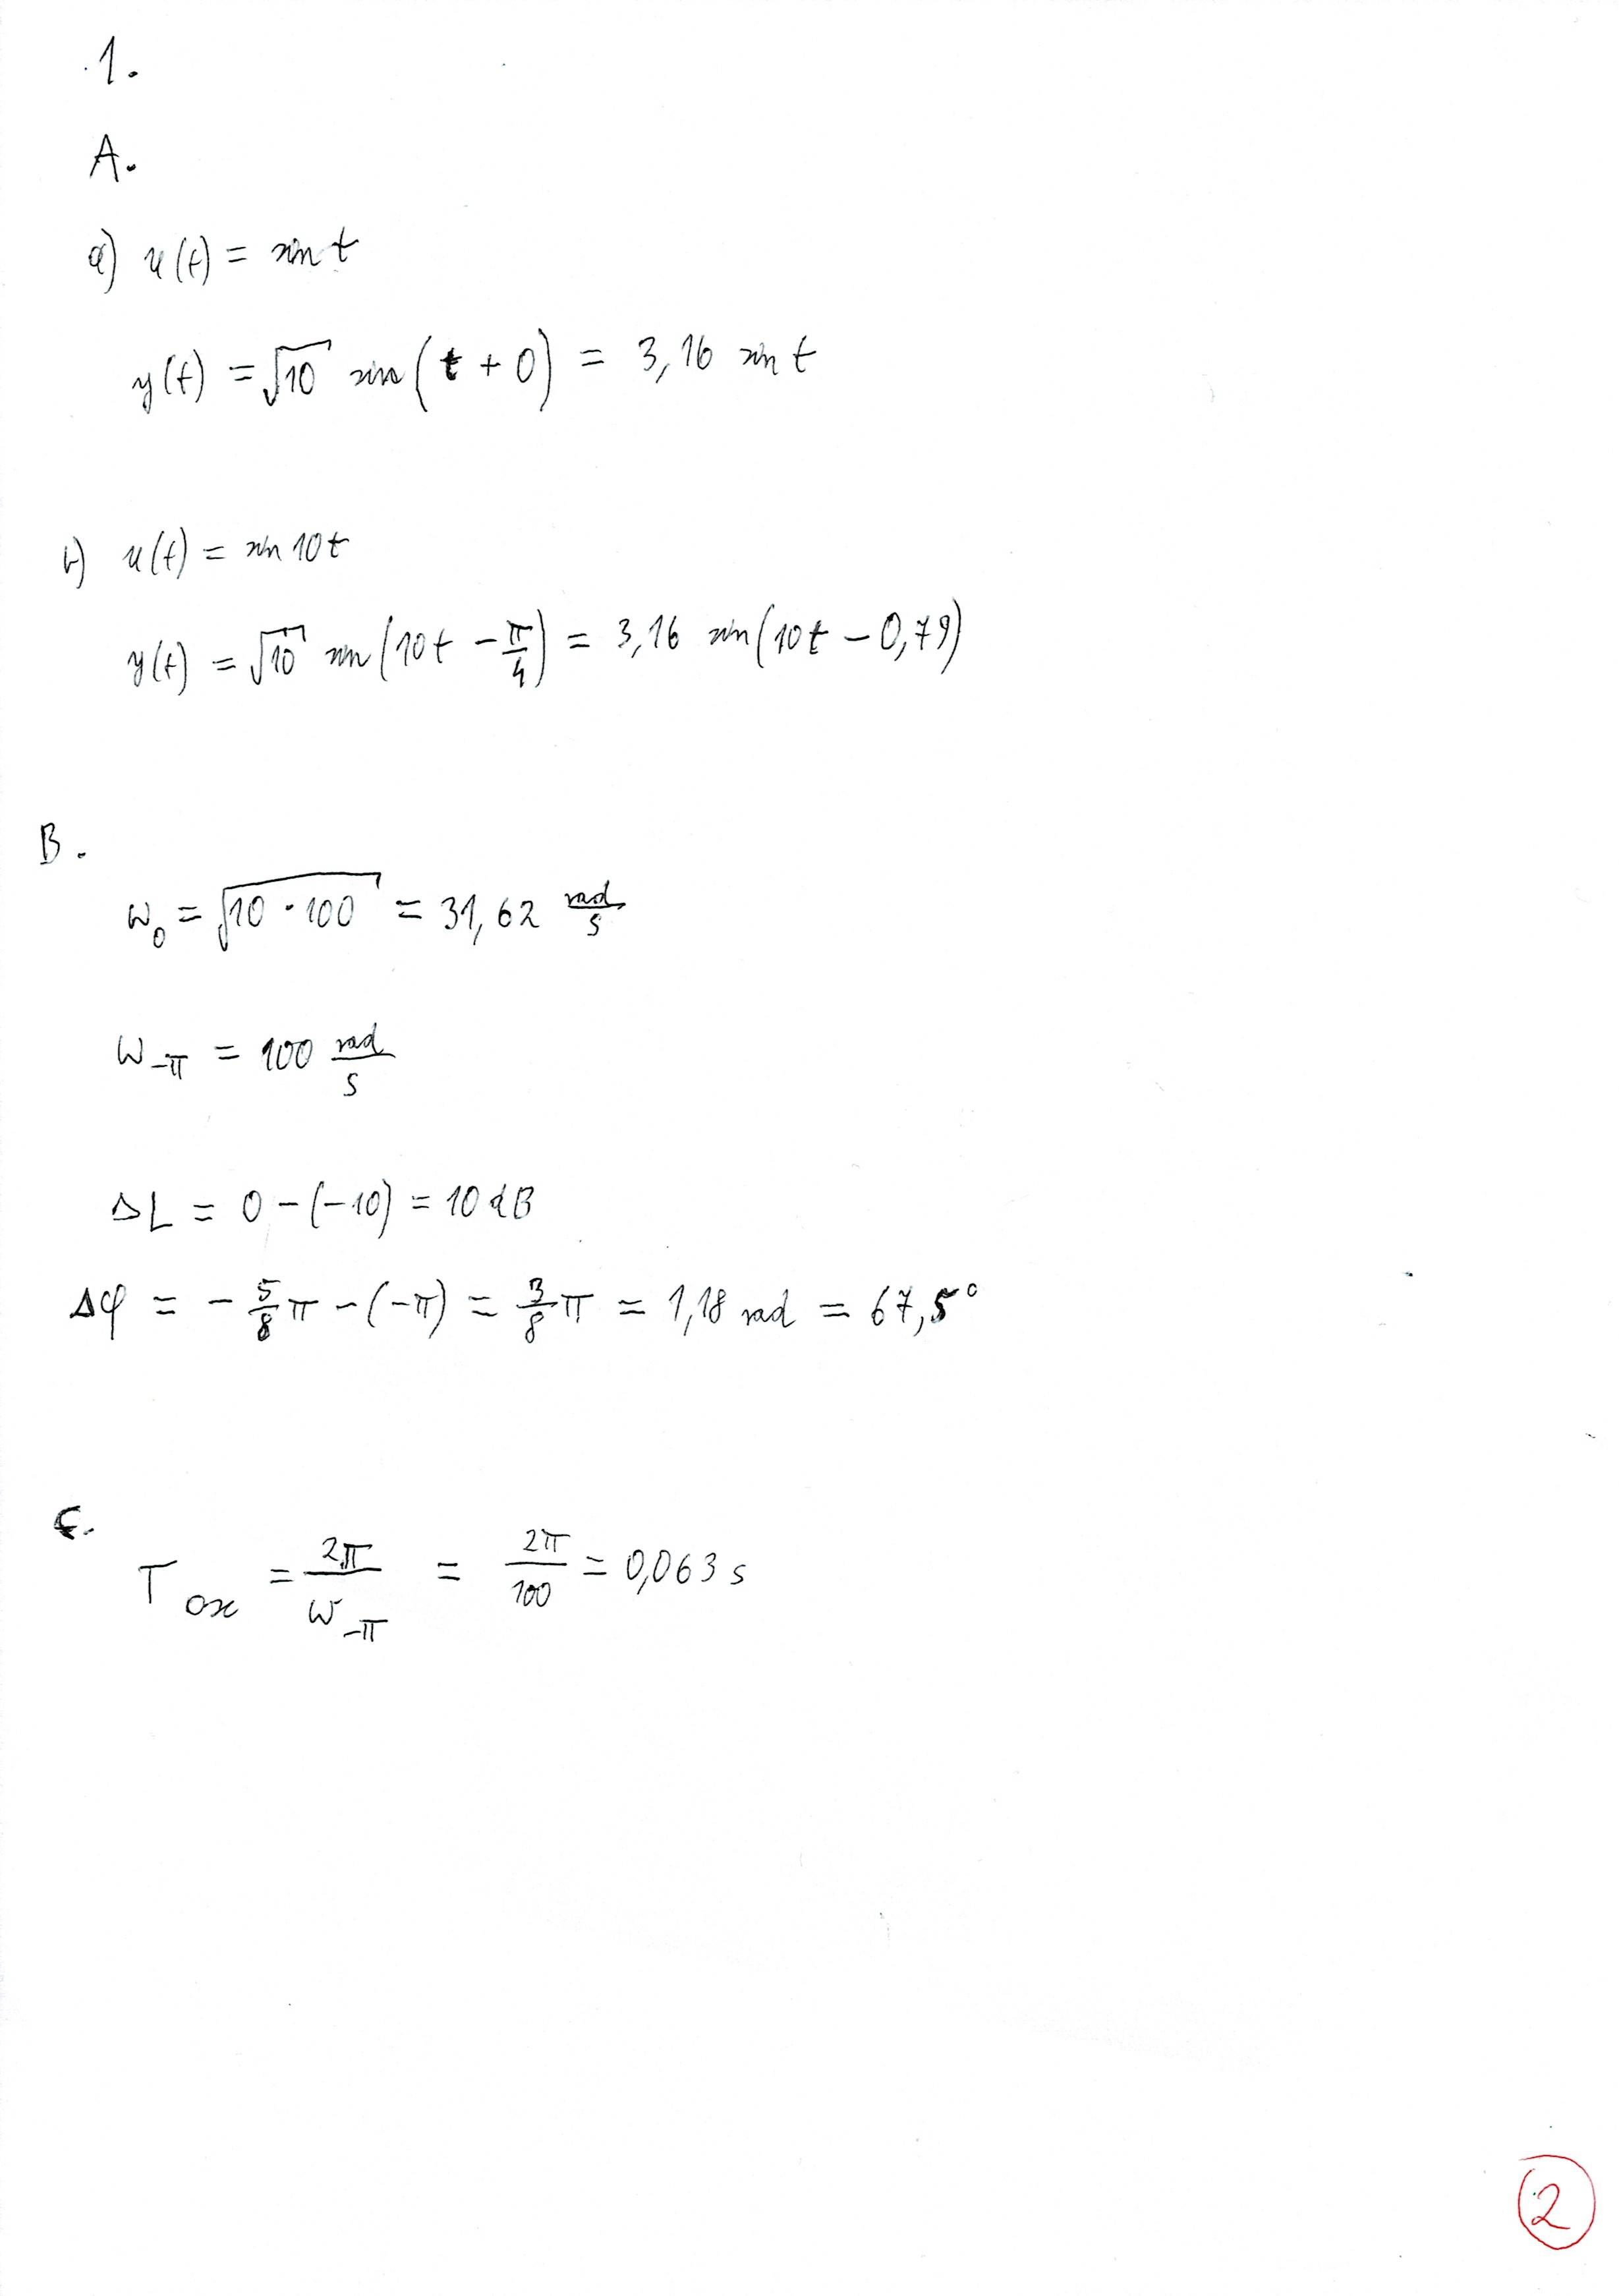 1.
A.
a) u(t) = sin t
y(t) = √10 sin(t + 0) = 3,16 sin t
b) u(t) = sin 10t
y(t) = √10 sin(10t - π/4) = 3,16 sin(10t - 0,79)
B.
ω₀ = √(10 · 100) = 31,62 rad/s
ω₋π = 100 rad/s
ΔL = 0 - (-10) = 10 dB
Δφ = - 5/8 π - (-π) = 3/8 π = 1,18 rad = 67,5°
C.
T osc = 2π/ω₋π = 2π/100 = 0,063 s
2